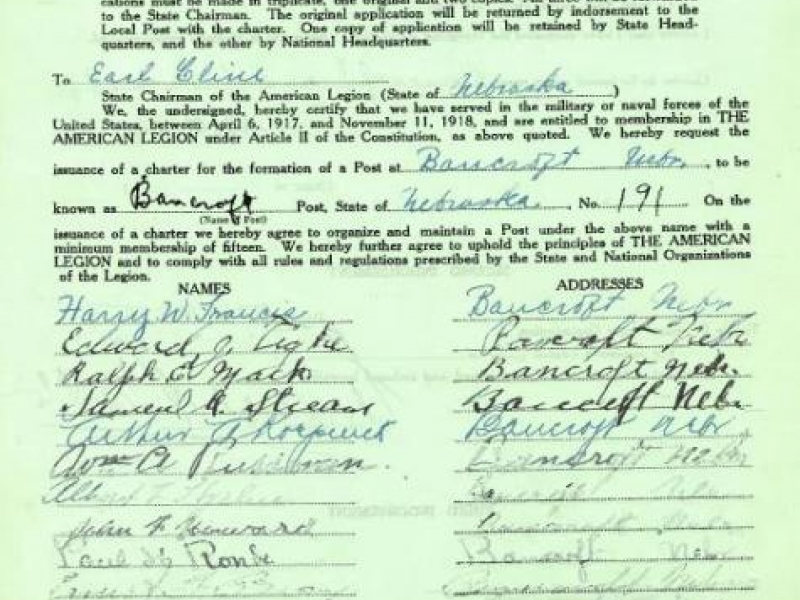 to the State Chairman. The original application will be returned by indorsement to the
Local Post with the charter. One copy of application will be retained by State Head-
quarters, and the other by National Headquarters.
To Earl Cline
State Chairman of the American Legion (State of Nebraska)
We, the undersigned, hereby certify that we have served in the military or naval forces of the
United States, between April 6, 1917, and November 11, 1918, and are entitled to membership in THE
AMERICAN LEGION under Article II of the Constitution, as above quoted. We hereby request the
issuance of a charter for the formation of a Post at Bancroft Nebr., to be
known as Bancroft Post, State of Nebraska, No. 191 On the
(Name of Post)
issuance of a charter we hereby agree to organize and maintain a Post under the above name with a
minimum membership of fifteen. We hereby further agree to uphold the principles of THE AMERICAN
LEGION and to comply with all rules and regulations prescribed by the State and National Organizations
of the Legion.
NAMES ADDRESSES
Harry W. Francis Bancroft Nebr
Edward J. Tighe Bancroft Nebr
Ralph E. Mack Bancroft Nebr.
Samuel Bancroft Nebr
Arthur Bancroft Nebr.
Wm A Bancroft Nebr
John F
Paul Bancroft Nebr